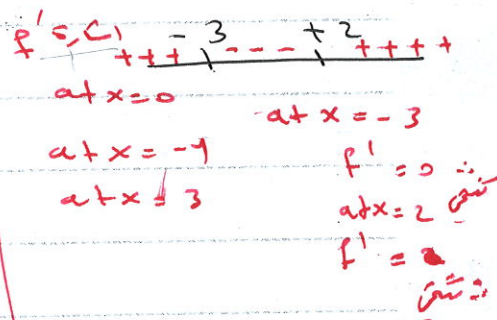 f' إشارة - 3 + 2
+ + + - - - + + + +
at x = 0
at x = - 3
at x = -4
f' = 0
at x = 3
at x = 2
f' =